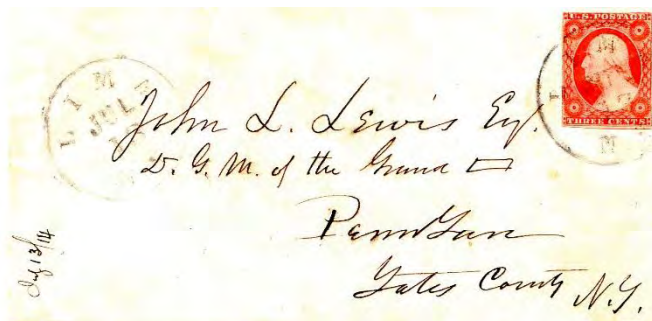 U.S. POSTAGE
THREE CENTS
LIME
JUL
John L. Lewis Esq.
D. G. M. of the Grand ▭
Penn Yan
Yates County N.Y.